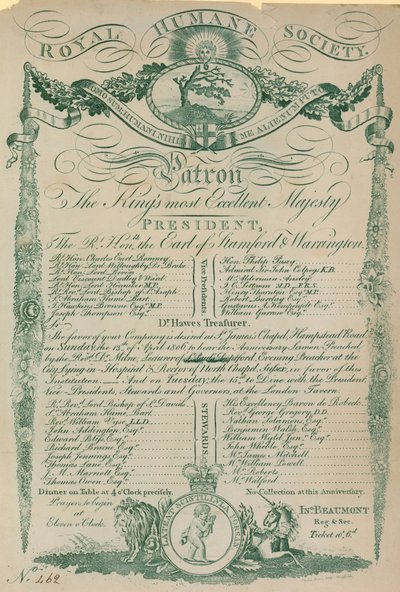 ROYAL HUMANE SOCIETY.
HOMO SUM: HUMANI NIHIL A ME ALIENUM PUTO
Patron
The King's most Excellent Majesty
PRESIDENT,
The Rt. Honble. the Earl of Stamford & Warrington.
Rt. Hon. Charles Earl Romney
Rt. Hon. Lord Willoughby De Broke
Rt. Hon. Lord Rivers
Lord Viscount Dudley & Ward
Rt. Hon. Lord Henniker M.P.
Rt. Revd. Lord Bishop of St. Asaph
Sr. Abraham Hume Bart.
J. Hawkins Browne Esqr. M.P.
Joseph Thompson Esqr.
Vice Presidents.
Hon. Philip Pusey
Admiral Sir John Colpoys K.B.
Mr. Alderman Ansley
J. C. Lettsom M.D., F.R.S.
Samuel Thornton Esqr. M.P.
Robert Barclay Esqr.
Gustavus A. Kempenfelt Esqr.
William Garrow Esqr.
Dr. Hawes Treasurer.
Sir
The favor of your Company is desired at St. James's Chapel, Hampstead Road,
on Sunday, the 13th of April 1806, to hear the Anniversary Sermon Preached
by the Revd. Dr. Milne, Lecturer of Deptford, Evening Preacher at the
City Lying-in Hospital & Rector of North Chapel, Sussex, in favor of this
Institution And on Tuesday, the 15th to Dine with the President
Vice-Presidents, Stewards and Governors, at the London Tavern.
Rt. Revd. Lord Bishop of St. Davids
Sr. Abraham Hume, Bart.
Revd. William Vyse, L.L.D.
John Addington, Esqr.
Edward Bliss, Esqr.
Richard Browne, Esqr.
Joseph Jennings, Esqr.
Thomas Lane, Esqr.
F. M. Marriott Esqr.
Thomas Owen, Esqr.
STEWARDS.
His Excellency Baron de Robeck.
Revd. George Gregory, D.D.
Nathan Solomons, Esqr.
Benjamin Walsh, Esqr.
William Wyld Junr. Esqr.
John Whittle Esqr.
Mr. James Mitchell
Mr. William Powell
Mr. Roberts
Mr. Walford
Dinner on Table at 4 o'Clock precisely.
No Collection at this Anniversary.
Prayers to begin
at
Eleven o'Clock.
LATEAT SCINTILLULA FORSAN
Ino. BEAUMONT
Reg & Sec.
Ticket 10s. 6d.
No. 462